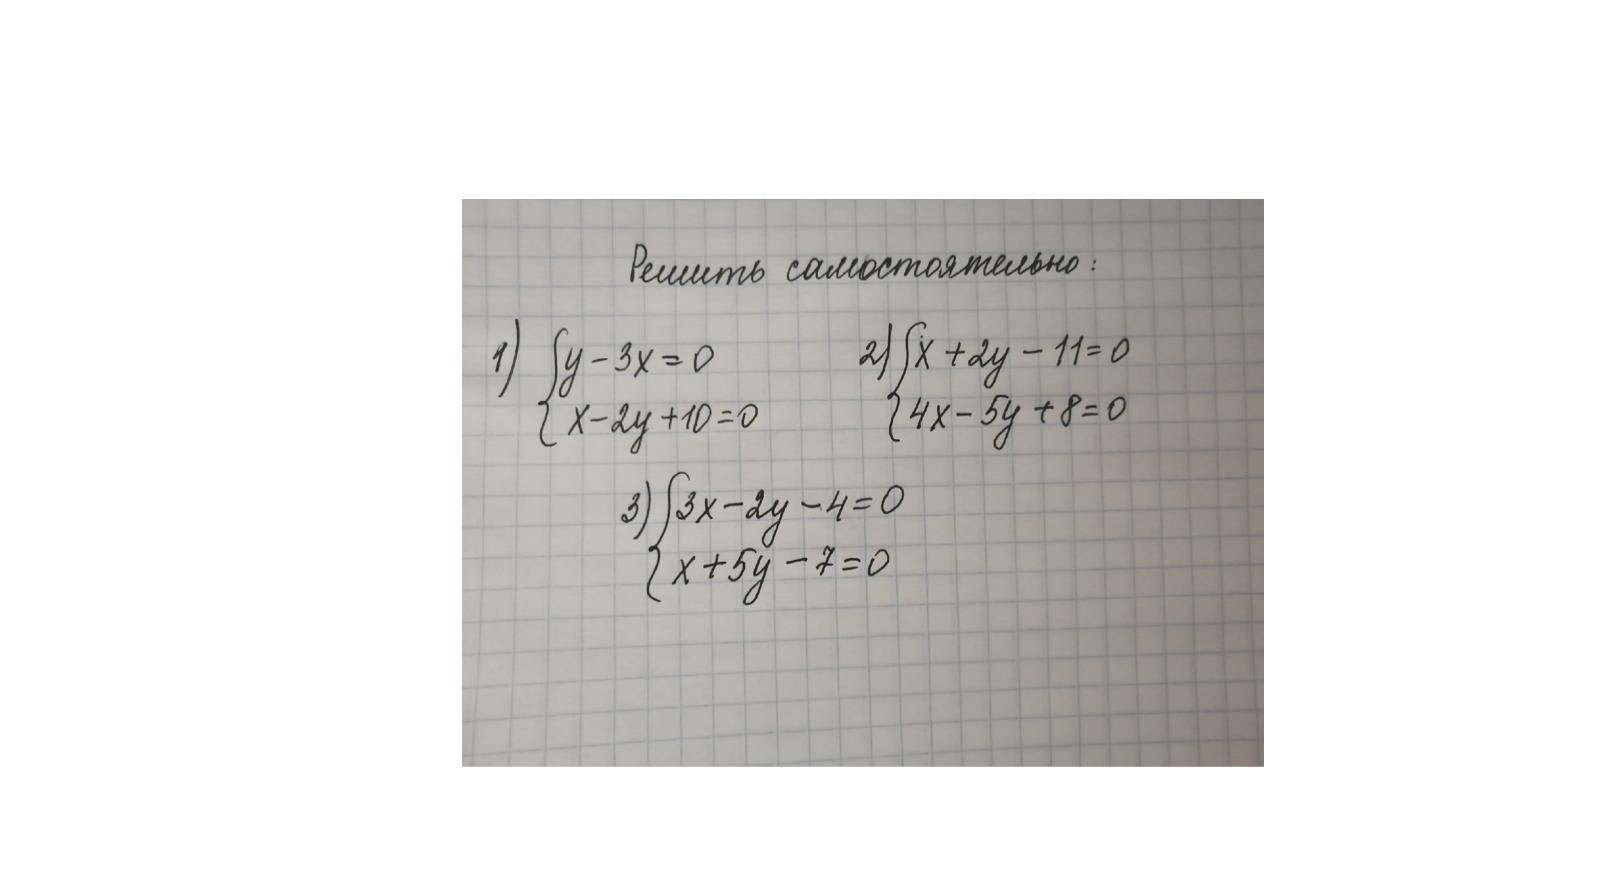 Решить самостоятельно:
1) { y - 3x = 0
x - 2y + 10 = 0
2) { x + 2y - 11 = 0
4x - 5y + 8 = 0
3) { 3x - 2y - 4 = 0
x + 5y - 7 = 0